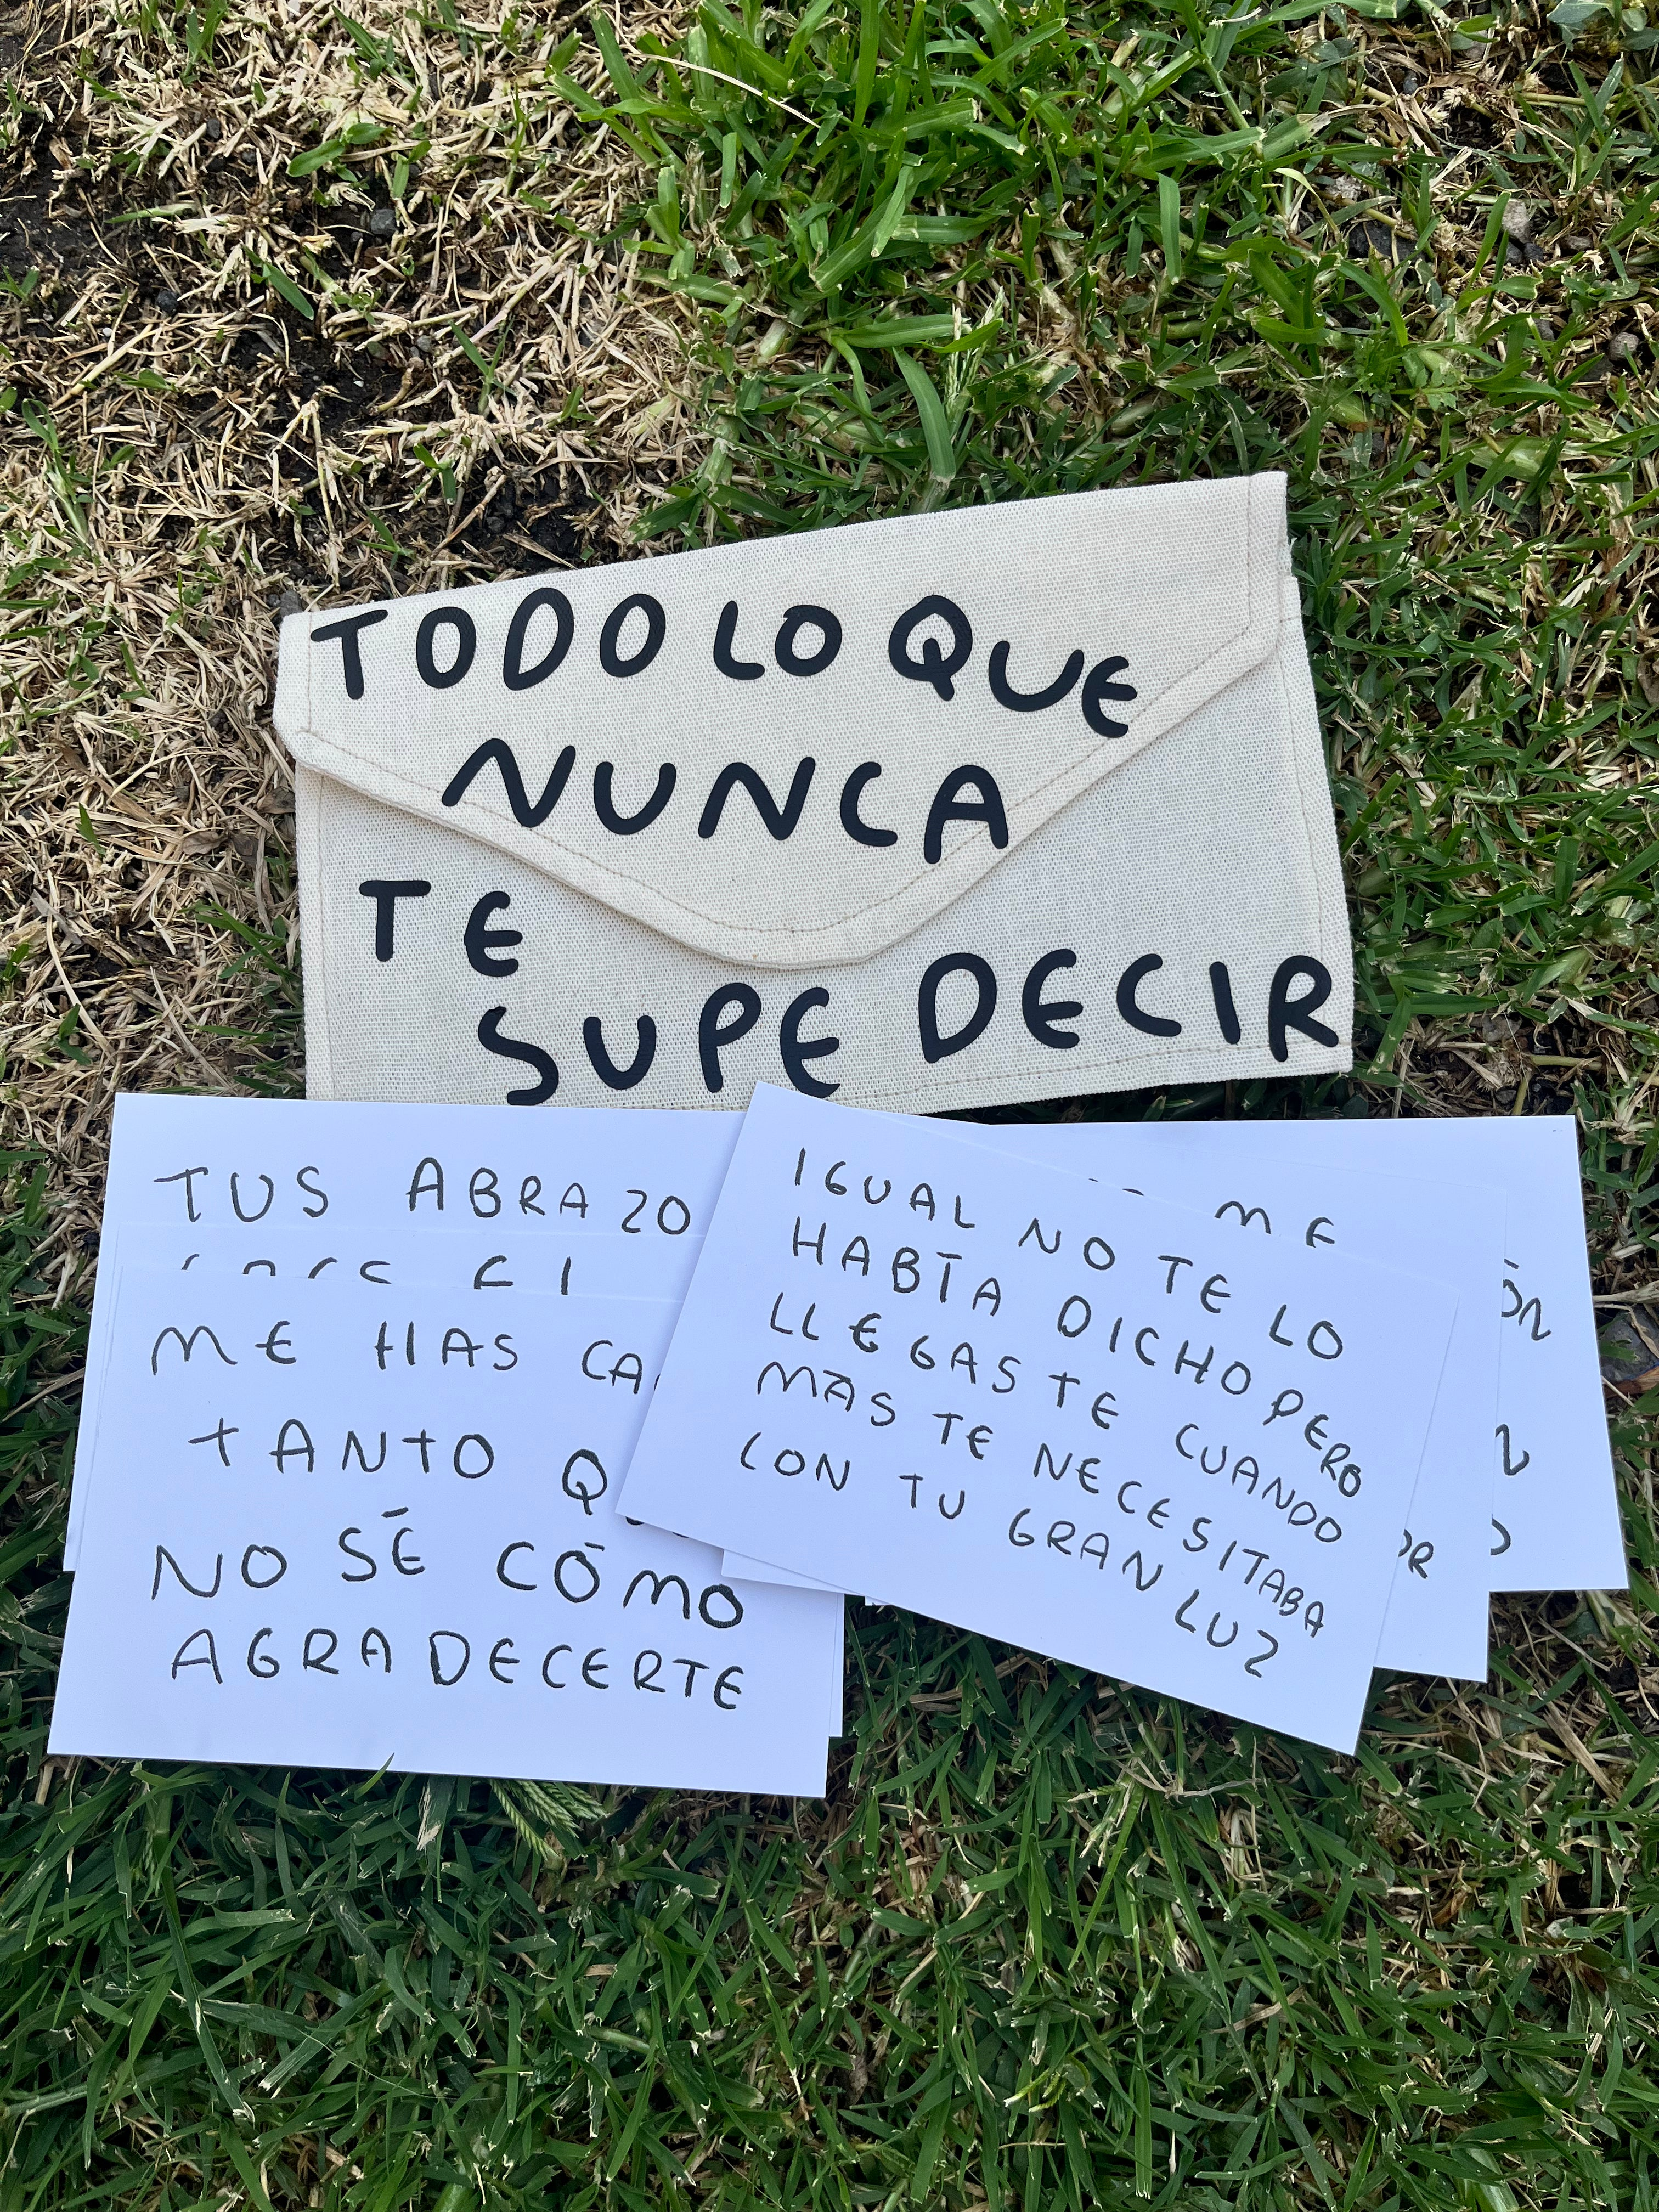 TODO LO QUE
NUNCA
TE
SUPE DECIR
TUS
ME HAS
TANTO
NO SÉ CÓMO
AGRADECERTE
IGUAL NO TE LO
HABÍA DICHO PERO
LLEGASTE CUANDO
MÁS TE NECESITABA
CON TU GRAN LUZ
ME